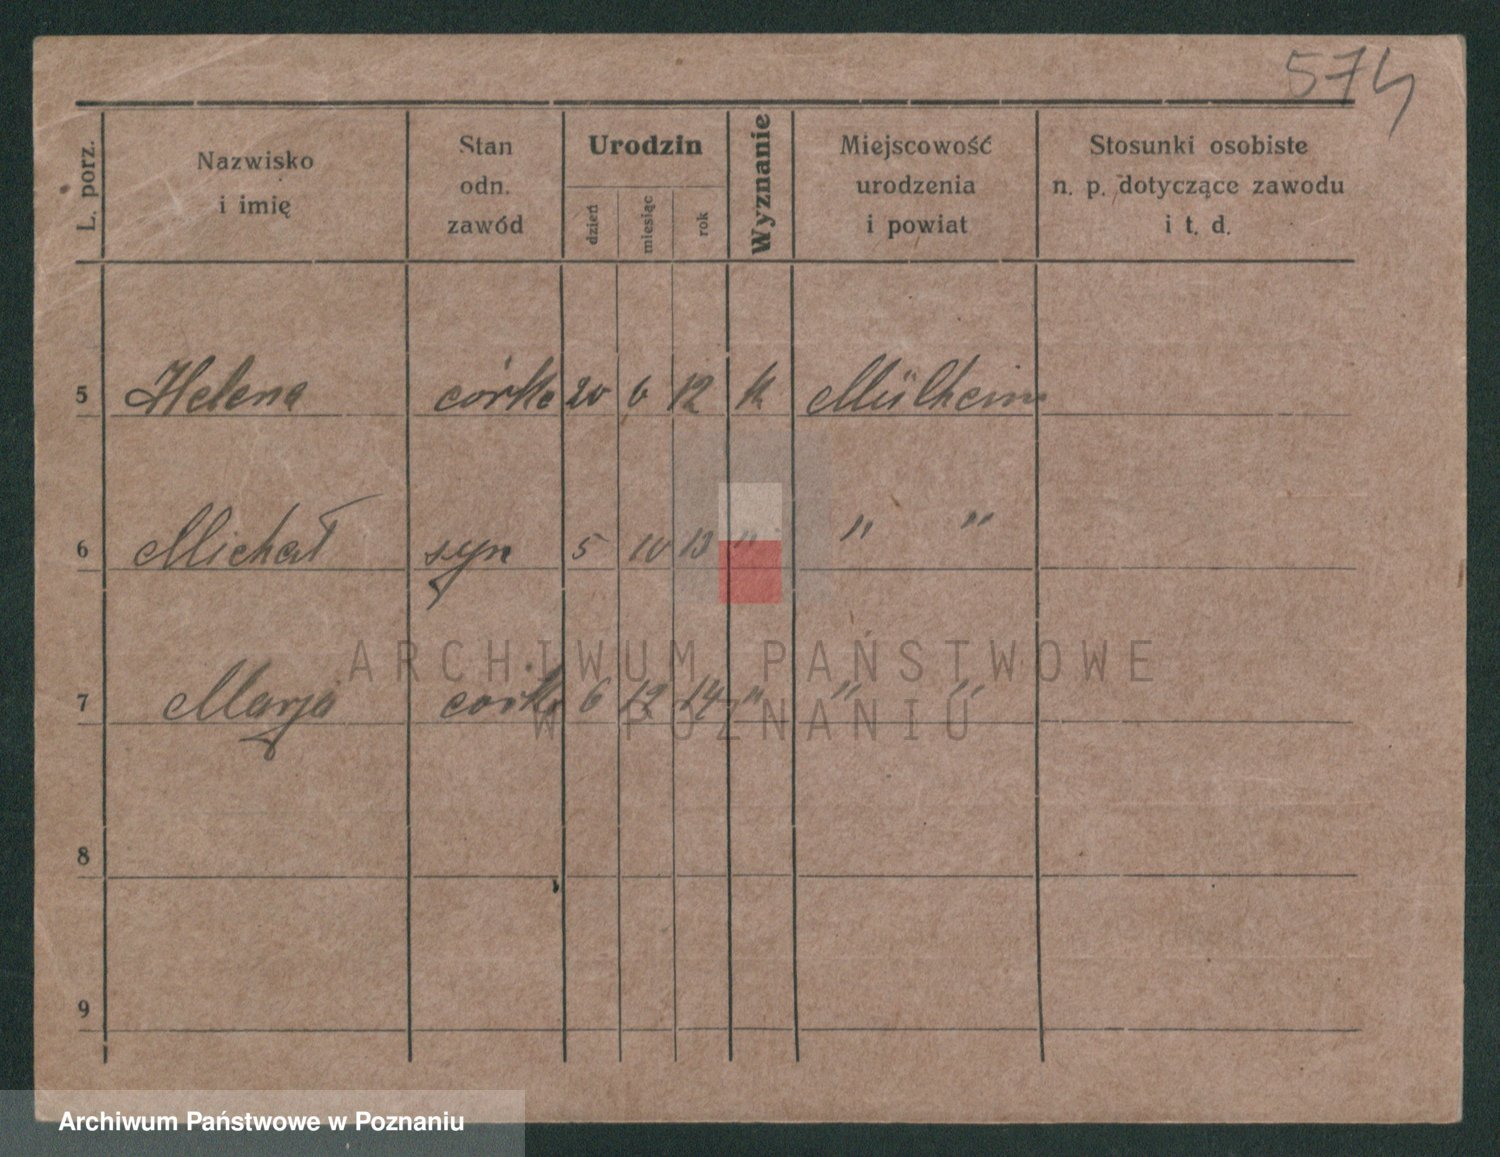 574
L. porz.
Nazwisko
i imię
Stan
odn.
zawód
Urodzin
dzień
miesiąc
rok
Wyznanie
Miejscowość
urodzenia
i powiat
Stosunki osobiste
n. p. dotyczące zawodu
i t. d.
5 Helena córka 20 6 12 k Mülheim
6 Michał syn 5 10 13 " " "
7 Marja córka 6 12 14 " " "
8
9
ARCHIWUM PAŃSTWOWE
W POZNANIU
Archiwum Państwowe w Poznaniu